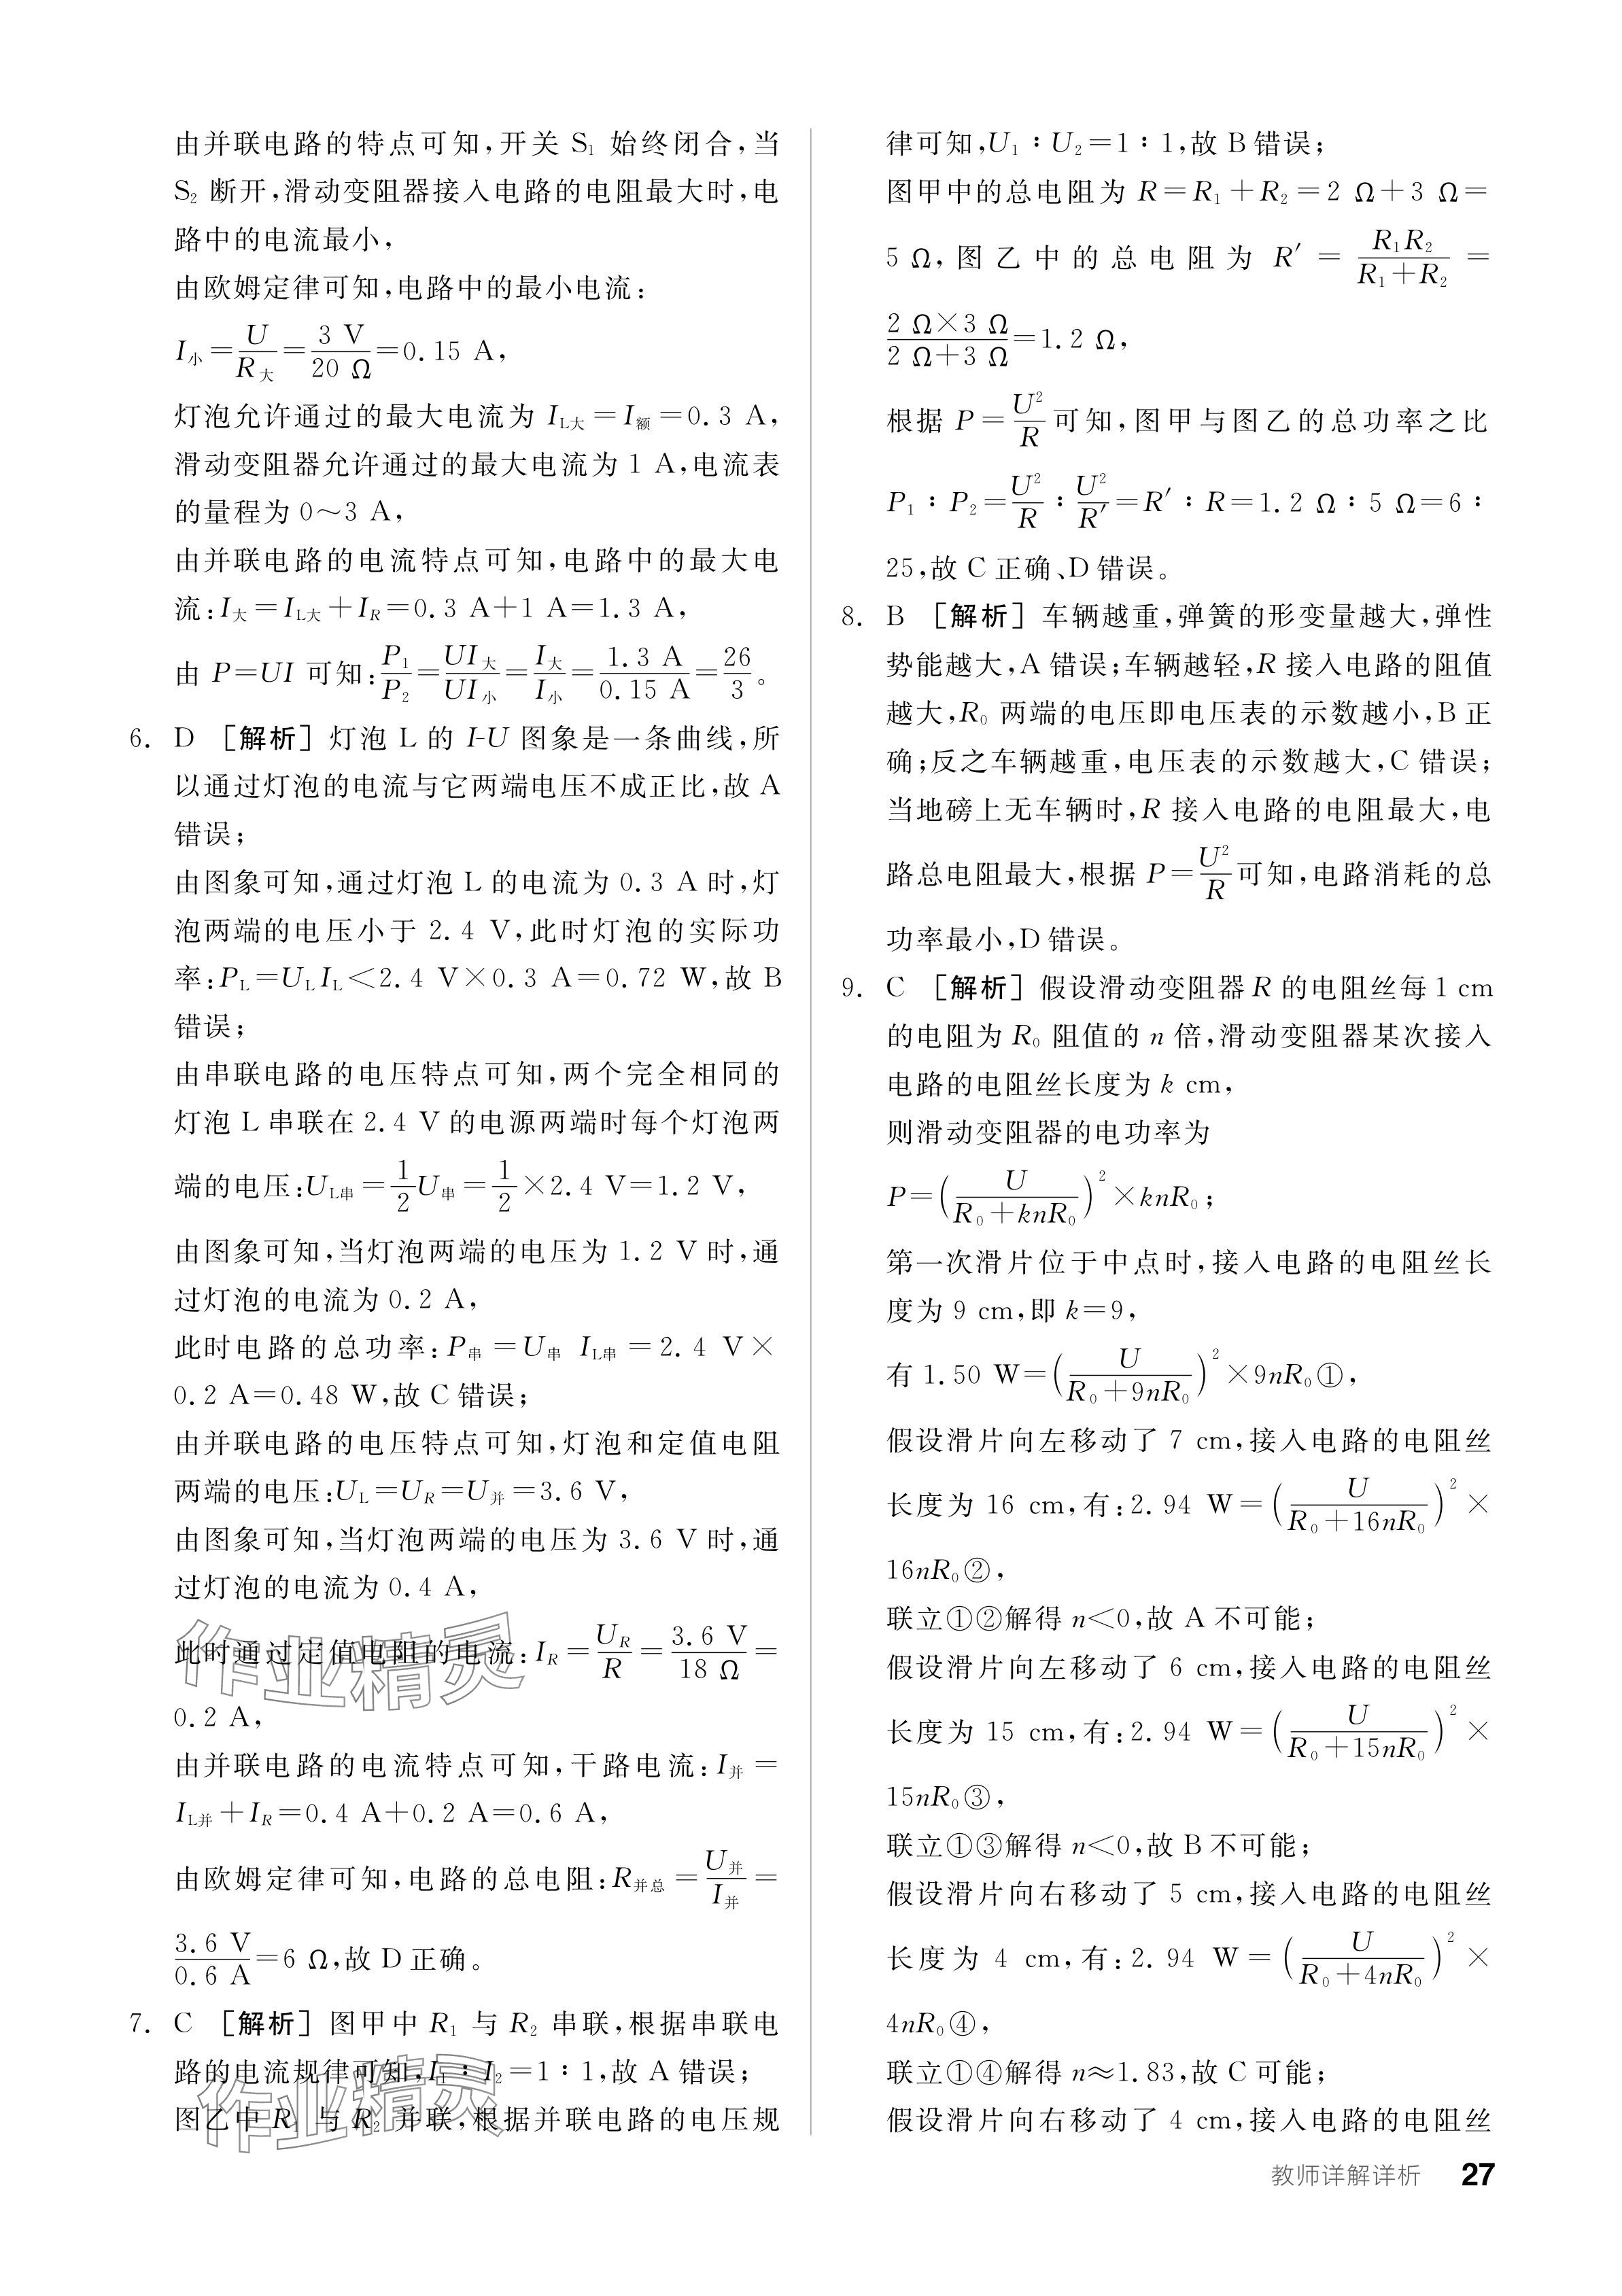 由并联电路的特点可知,开关 S₁ 始终闭合,当
S₂ 断开,滑动变阻器接入电路的电阻最大时,电
路中的电流最小,
由欧姆定律可知,电路中的最小电流:
I小=U/R大=3 V/20 Ω=0.15 A,
灯泡允许通过的最大电流为 I_L大=I额=0.3 A,
滑动变阻器允许通过的最大电流为 1 A,电流表
的量程为 0~3 A,
由并联电路的电流特点可知,电路中的最大电
流:I大=I_L大+I_R=0.3 A+1 A=1.3 A,
由 P=UI 可知:P₁/P₂=UI大/UI小=I大/I小=1.3 A/0.15 A=26/3。
6. D [解析] 灯泡 L 的 I-U 图象是一条曲线,所
以通过灯泡的电流与它两端电压不成正比,故 A
错误;
由图象可知,通过灯泡 L 的电流为 0.3 A 时,灯
泡两端的电压小于 2.4 V,此时灯泡的实际功
率:P_L=U_L I_L<2.4 V×0.3 A=0.72 W,故 B
错误;
由串联电路的电压特点可知,两个完全相同的
灯泡 L 串联在 2.4 V 的电源两端时每个灯泡两
端的电压:U_L串=1/2U串=1/2×2.4 V=1.2 V,
由图象可知,当灯泡两端的电压为 1.2 V 时,通
过灯泡的电流为 0.2 A,
此时电路的总功率:P串=U串 I_L串=2.4 V×
0.2 A=0.48 W,故 C 错误;
由并联电路的电压特点可知,灯泡和定值电阻
两端的电压:U_L=U_R=U并=3.6 V,
由图象可知,当灯泡两端的电压为 3.6 V 时,通
过灯泡的电流为 0.4 A,
此时通过定值电阻的电流:I_R=U_R/R=3.6 V/18 Ω=
0.2 A,
由并联电路的电流特点可知,干路电流:I并=
I_L并+I_R=0.4 A+0.2 A=0.6 A,
由欧姆定律可知,电路的总电阻:R并总=U并/I并=
3.6 V/0.6 A=6 Ω,故 D 正确。
7. C [解析] 图甲中 R₁ 与 R₂ 串联,根据串联电
路的电流规律可知,I₁∶I₂=1∶1,故 A 错误;
图乙中 R₁ 与 R₂ 并联,根据并联电路的电压规
律可知,U₁∶U₂=1∶1,故 B 错误;
图甲中的总电阻为 R=R₁+R₂=2 Ω+3 Ω=
5 Ω,图乙中的总电阻为 R′=R₁R₂/(R₁+R₂)=
(2 Ω×3 Ω)/(2 Ω+3 Ω)=1.2 Ω,
根据 P=U²/R可知,图甲与图乙的总功率之比
P₁∶P₂=U²/R∶U²/R′=R′∶R=1.2 Ω∶5 Ω=6∶
25,故 C 正确、D 错误。
8. B [解析] 车辆越重,弹簧的形变量越大,弹性
势能越大,A 错误;车辆越轻,R 接入电路的阻值
越大,R₀ 两端的电压即电压表的示数越小,B 正
确;反之车辆越重,电压表的示数越大,C 错误;
当地磅上无车辆时,R 接入电路的电阻最大,电
路总电阻最大,根据 P=U²/R可知,电路消耗的总
功率最小,D 错误。
9. C [解析] 假设滑动变阻器 R 的电阻丝每 1 cm
的电阻为 R₀ 阻值的 n 倍,滑动变阻器某次接入
电路的电阻丝长度为 k cm,
则滑动变阻器的电功率为
P=(U/(R₀+knR₀))²×knR₀;
第一次滑片位于中点时,接入电路的电阻丝长
度为 9 cm,即 k=9,
有 1.50 W=(U/(R₀+9nR₀))²×9nR₀①,
假设滑片向左移动了 7 cm,接入电路的电阻丝
长度为 16 cm,有:2.94 W=(U/(R₀+16nR₀))²×
16nR₀②,
联立①②解得 n<0,故 A 不可能;
假设滑片向左移动了 6 cm,接入电路的电阻丝
长度为 15 cm,有:2.94 W=(U/(R₀+15nR₀))²×
15nR₀③,
联立①③解得 n<0,故 B 不可能;
假设滑片向右移动了 5 cm,接入电路的电阻丝
长度为 4 cm,有:2.94 W=(U/(R₀+4nR₀))²×
4nR₀④,
联立①④解得 n≈1.83,故 C 可能;
假设滑片向右移动了 4 cm,接入电路的电阻丝
教师详解详析 27
作业精灵
作业精灵